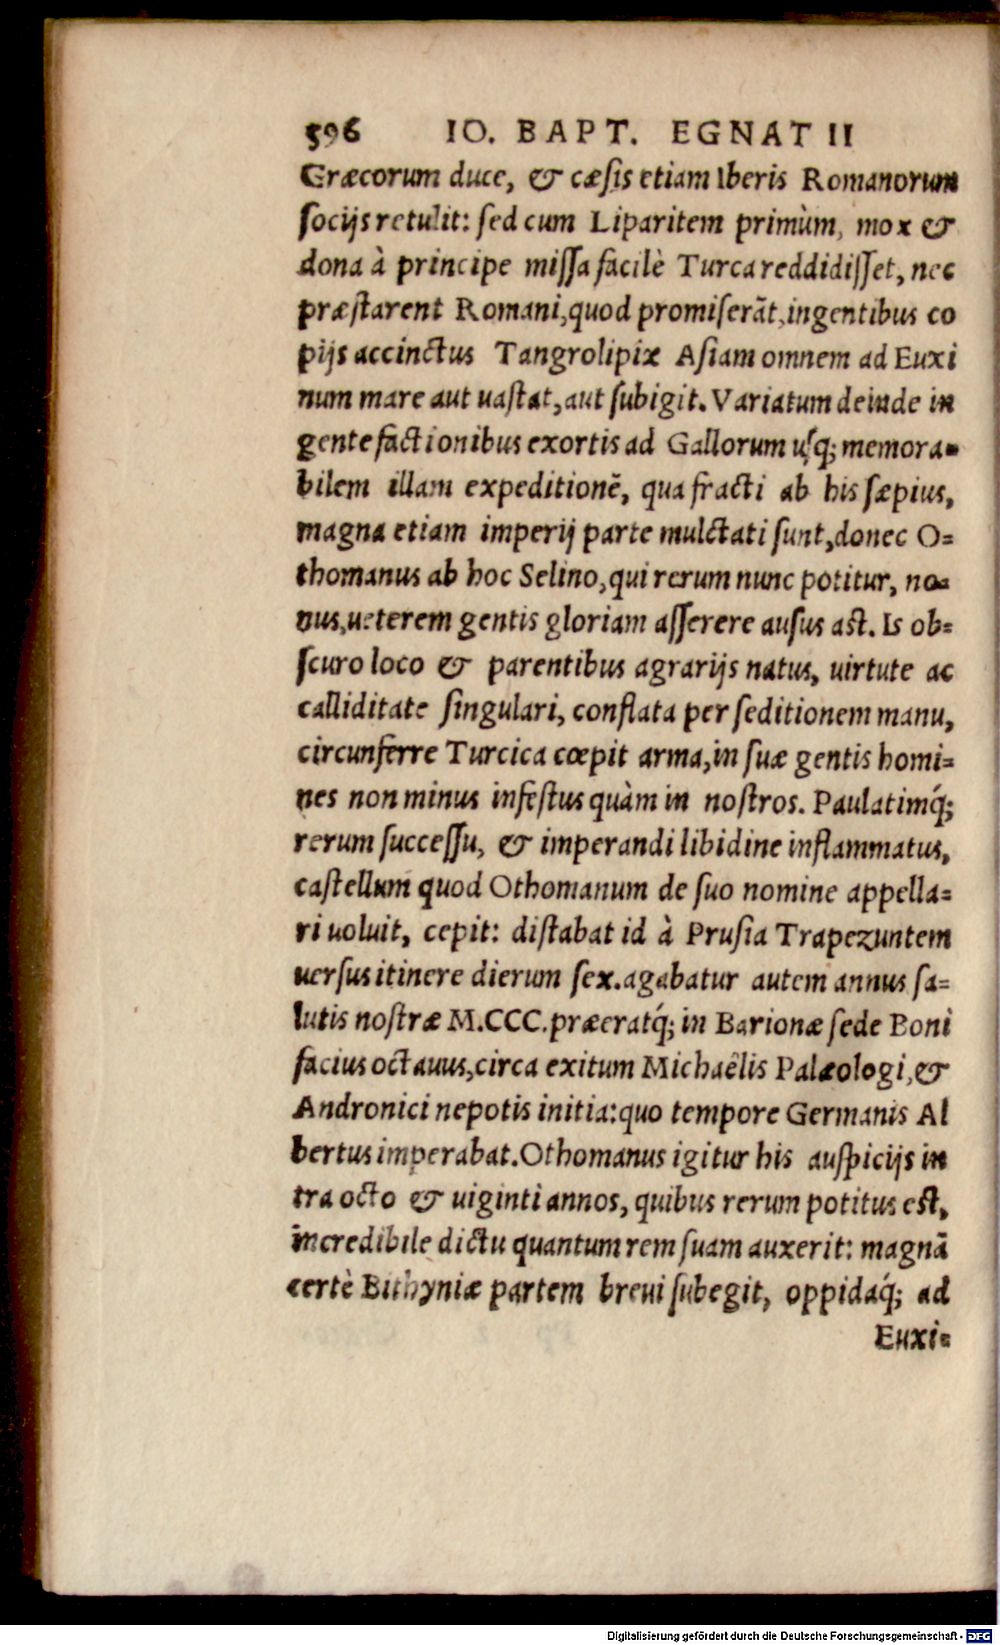 596 IO. BAPT. EGNAT II
Græcorum duce, & cæsis etiam Iberis Romanorum
socijs retulit: sed cum Liparitem primùm, mox &
dona à principe missa facilè Turca reddidisset, nec
præstarent Romani, quod promiserãt, ingentibus co
pijs accinctus Tangrolipix Asiam omnem ad Euxi
num mare aut uastat, aut subigit. Variatum deinde in
gente factionibus exortis ad Gallorum usq; memora-
bilem illam expeditionẽ, qua fracti ab his sæpius,
magna etiam imperij parte mulctati sunt, donec O-
thomanus ab hoc Selino, qui rerum nunc potitur, no-
nus, ueterem gentis gloriam asserere ausus ast. Is ob-
scuro loco & parentibus agrarijs natus, uirtute ac
calliditate singulari, conflata per seditionem manu,
circunferre Turcica cœpit arma, in suæ gentis homi-
nes non minus infestus quàm in nostros. Paulatimq́;
rerum successu, & imperandi libidine inflammatus,
castellum quod Othomanum de suo nomine appella-
ri uoluit, cepit: distabat id à Prusia Trapezuntem
uersus itinere dierum sex. agebatur autem annus sa-
lutis nostræ M.CCC. præeratq́; in Barionæ sede Boni
facius octauus, circa exitum Michaêlis Palæologi, &
Andronici nepotis initia: quo tempore Germanis Al
bertus imperabat. Othomanus igitur his auspicijs in
tra octo & uiginti annos, quibus rerum potitus est,
incredibile dictu quantum rem suam auxerit: magnã
certè Bithyniæ partem breui subegit, oppidaq́; ad
Euxi-
Digitalisierung gefördert durch die Deutsche Forschungsgemeinschaft - DFG